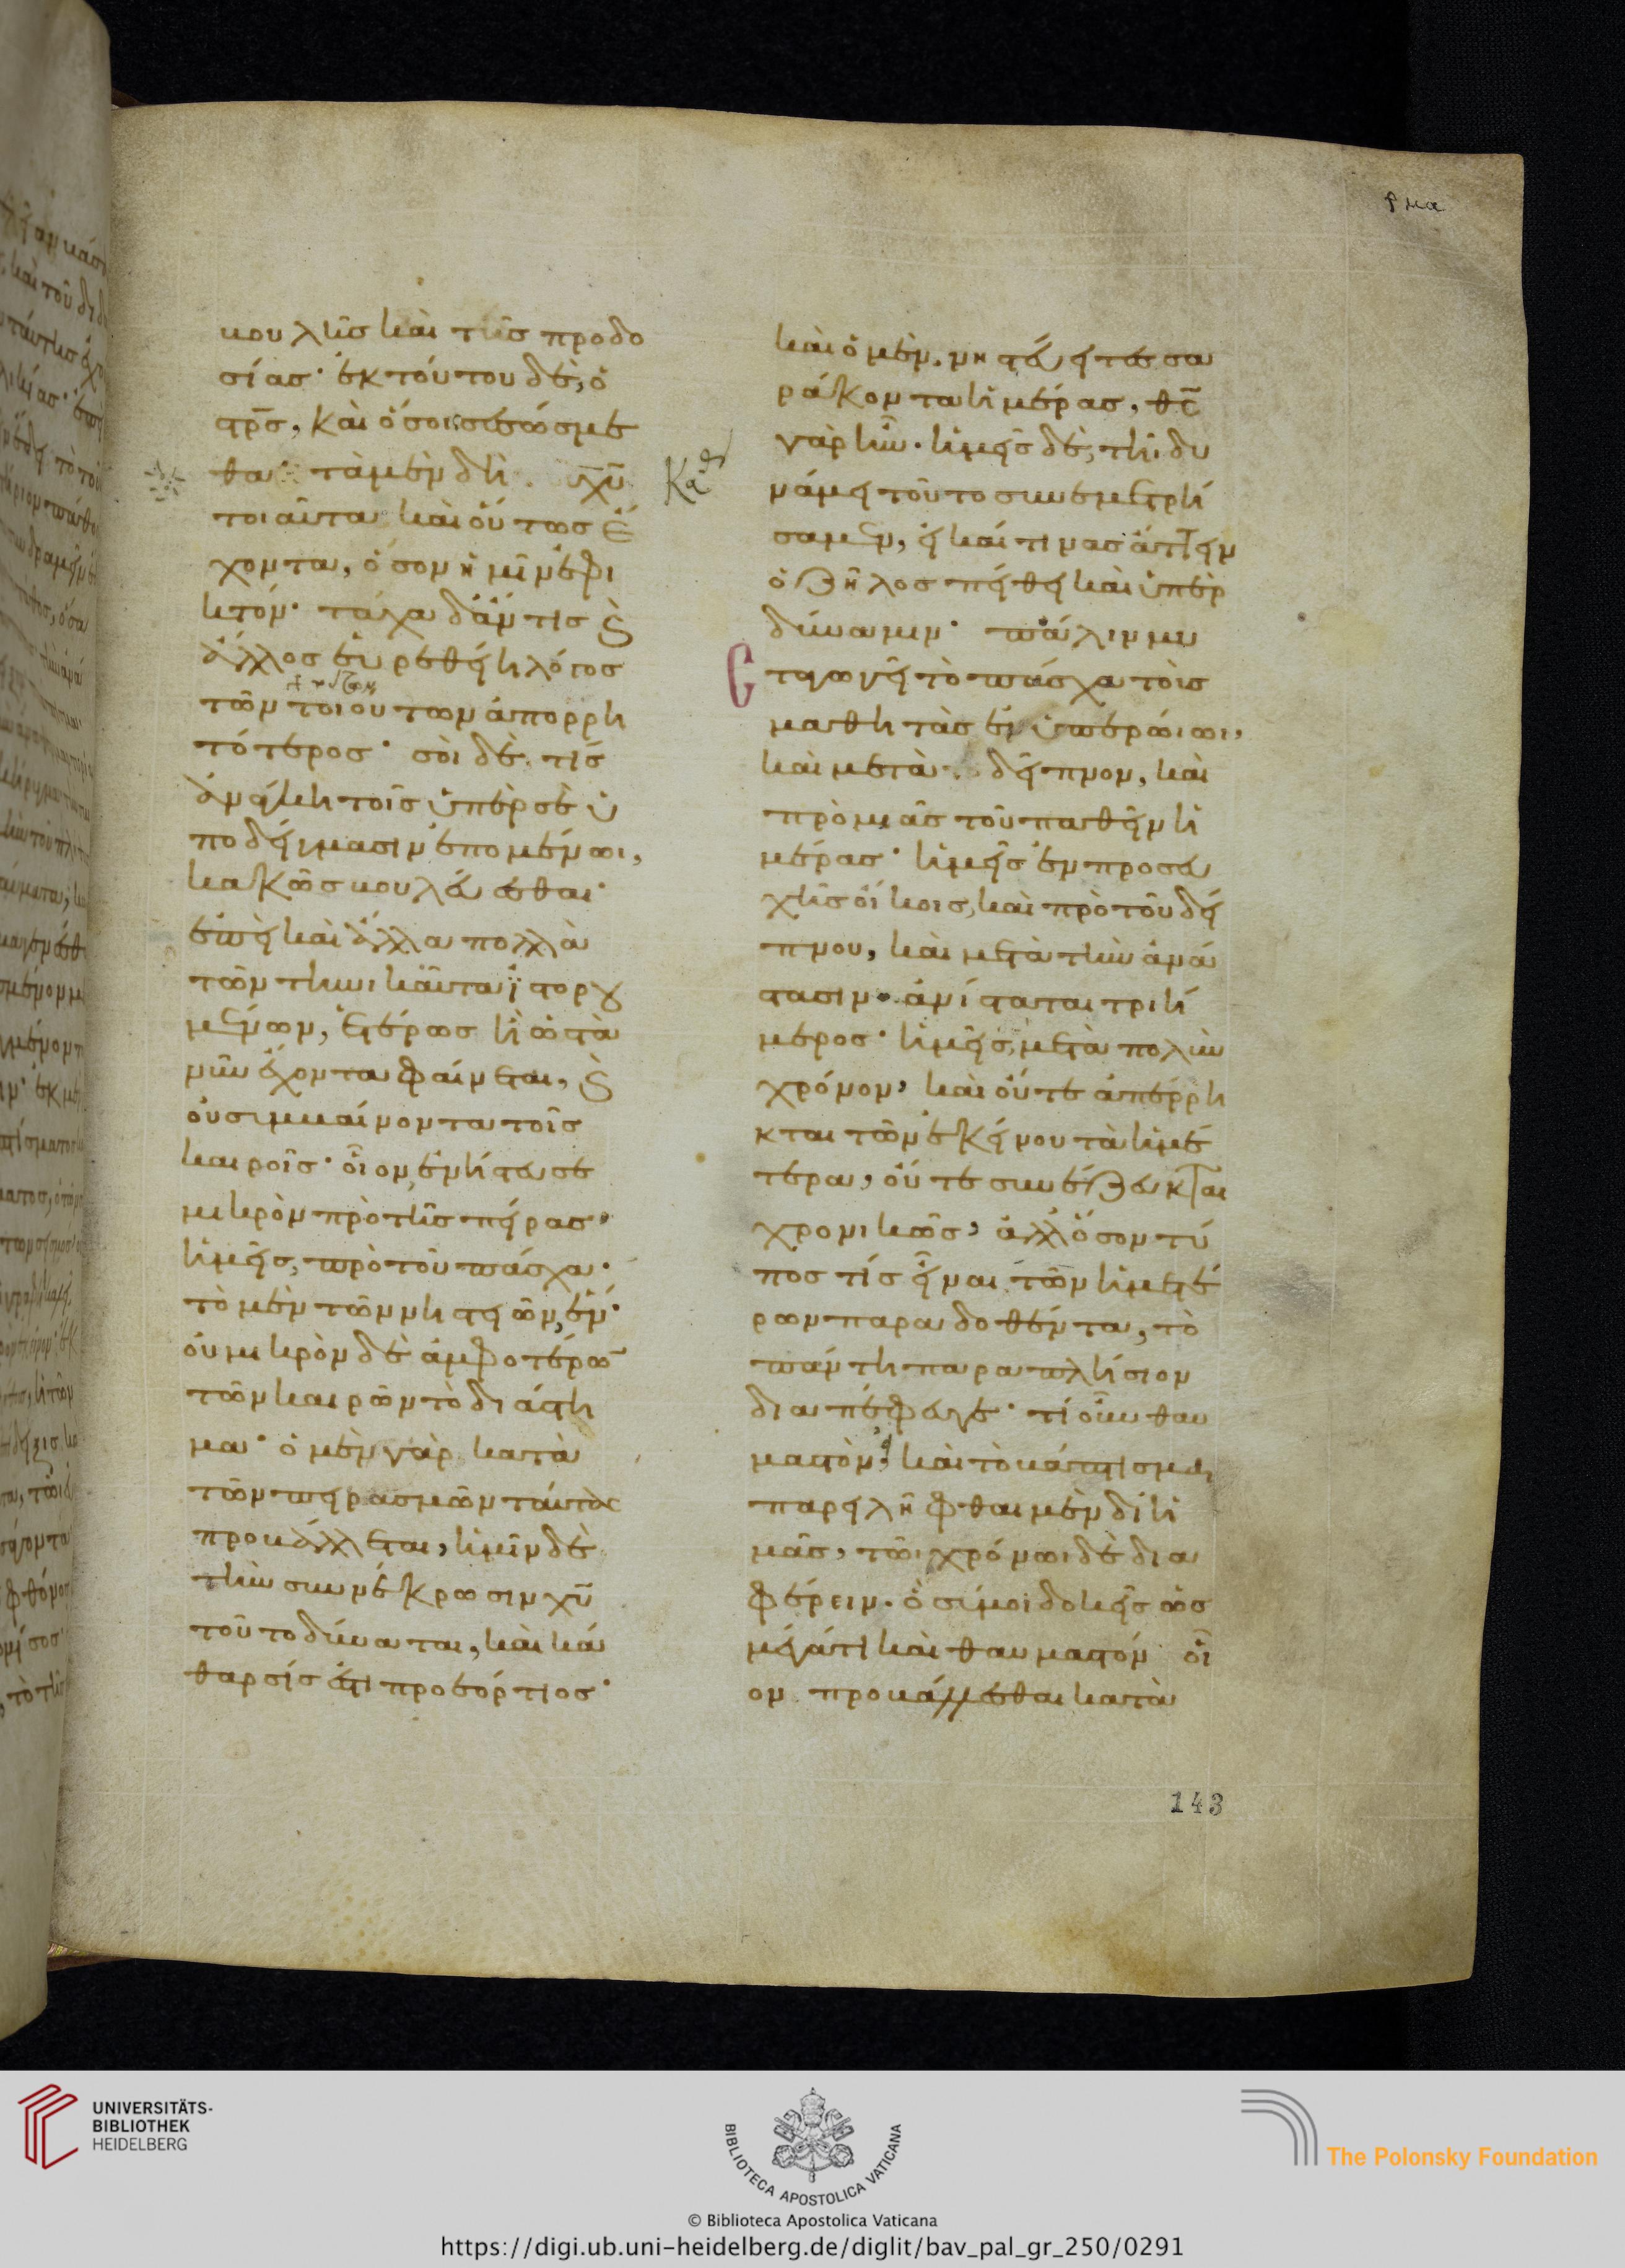 βουλῆς καὶ τῆς προδο
σίας· ἐκ τούτου δὲ, ὁ
στρ̅ς, καὶ ὅσοις σεσώσμε
θα· τὰ μὲν δὴ χυ̅
τοιαῦτα καὶ οὕτως ἔ
χοντα, ὅσον ἡμῖν ἐφι
κτόν· τάχα δἄν τις ϗ
ἄλλος εὑρεθείη λόγος
τῶν τοιούτων ἀπορρη
τότερος· σοὶ δὲ τίς
ἀνάγκη τοῖς ὑπὲρ σὲ ὑ
ποδείγμασιν ἑπομένωι,
κακῶς βουλεύεσθαι·
ἐπεὶ καὶ ἄλλα πολλὰ
τῶν τηνικαῦτα ἱστορου
μένων, ἑτέρως ἢ ὡς τὰ
νῦν ἔχοντα φαίνεται, ϗ
οὐ συμβαίνοντα τοῖς
καιροῖς· οἷον, ἐνήστευσε
μικρὸν πρὸ τῆς πείρας·
ἡμεῖς, πρὸ τοῦ πάσχα·
τὸ μὲν τῶν νηστειῶν, ἕν·
οὐ μικρὸν δὲ ἀμφοτέρω̅
τῶν καιρῶν τὸ διάστη
μα· ὁ μὲν γὰρ κατὰ
τῶν πειρασμῶν ταύτας
προβάλλεται, ἡμῖν δὲ
τὴν συννέκρωσιν χυ̅
τοῦτο δύναται, καὶ κά
θαρσίς ἐστι προεόρτιος·
ρμα
καὶ ὁ μὲν νηστεύει τεσσα
ράκοντα ἡμέρας, θς̅
γὰρ ἦν· ἡμεῖς δὲ, τῆι δυ
νάμει τοῦτο συνεμετρή
σαμεν, εἰ καί τινας ἄττειν
ὁ ζῆλος πείθει καὶ ὑπὲρ
δύναμιν· πάλιν μυ
σταγωγεῖ τὸ πάσχα τοὺς
μαθητὰς ἐν ὑπερώιωι,
καὶ μετὰ δεῖπνον, καὶ
πρὸ μιᾶς τοῦ παθεῖν ἡ
μέρας· ἡμεῖς ἐν προσευ
χῆς οἴκοις, καὶ πρὸ τοῦ δεί
πνου, καὶ μετὰ τὴν ἀνά
στασιν· ἀνίσταται τριή
μερος· ἡμεῖς, μετὰ πολὺν
χρόνον· καὶ οὔτε ἀπέρρη
κται τῶν ἐκείνου τὰ ἡμέ
τερα, οὔτε συνέζευκται
χρονικῶς, ἀλλ' ὅσον τύ
πος τίς εἶναι τῶν ἡμετέ
ρων παραδοθέντα, τὸ
πάντη παραπλήσιον
διαπέφευγε· τί οὖν θαυ
μαστὸν, εἰ καὶ τὸ βάπτισμα
παρειλῆφθαι μὲν δι' ἡ
μᾶς, τῶι χρόνωι δὲ δια
φέρειν· ὃ σύ μοι δοκεῖς ὡς
μέγάτι καὶ θαυμαστόν οἷ
ον προβάλλεσθαι κατὰ
143
UNIVERSITÄTS-
BIBLIOTHEK
HEIDELBERG
BIBLIOTECA APOSTOLICA VATICANA
The Polonsky Foundation
© Biblioteca Apostolica Vaticana
https://digi.ub.uni-heidelberg.de/diglit/bav_pal_gr_250/0291